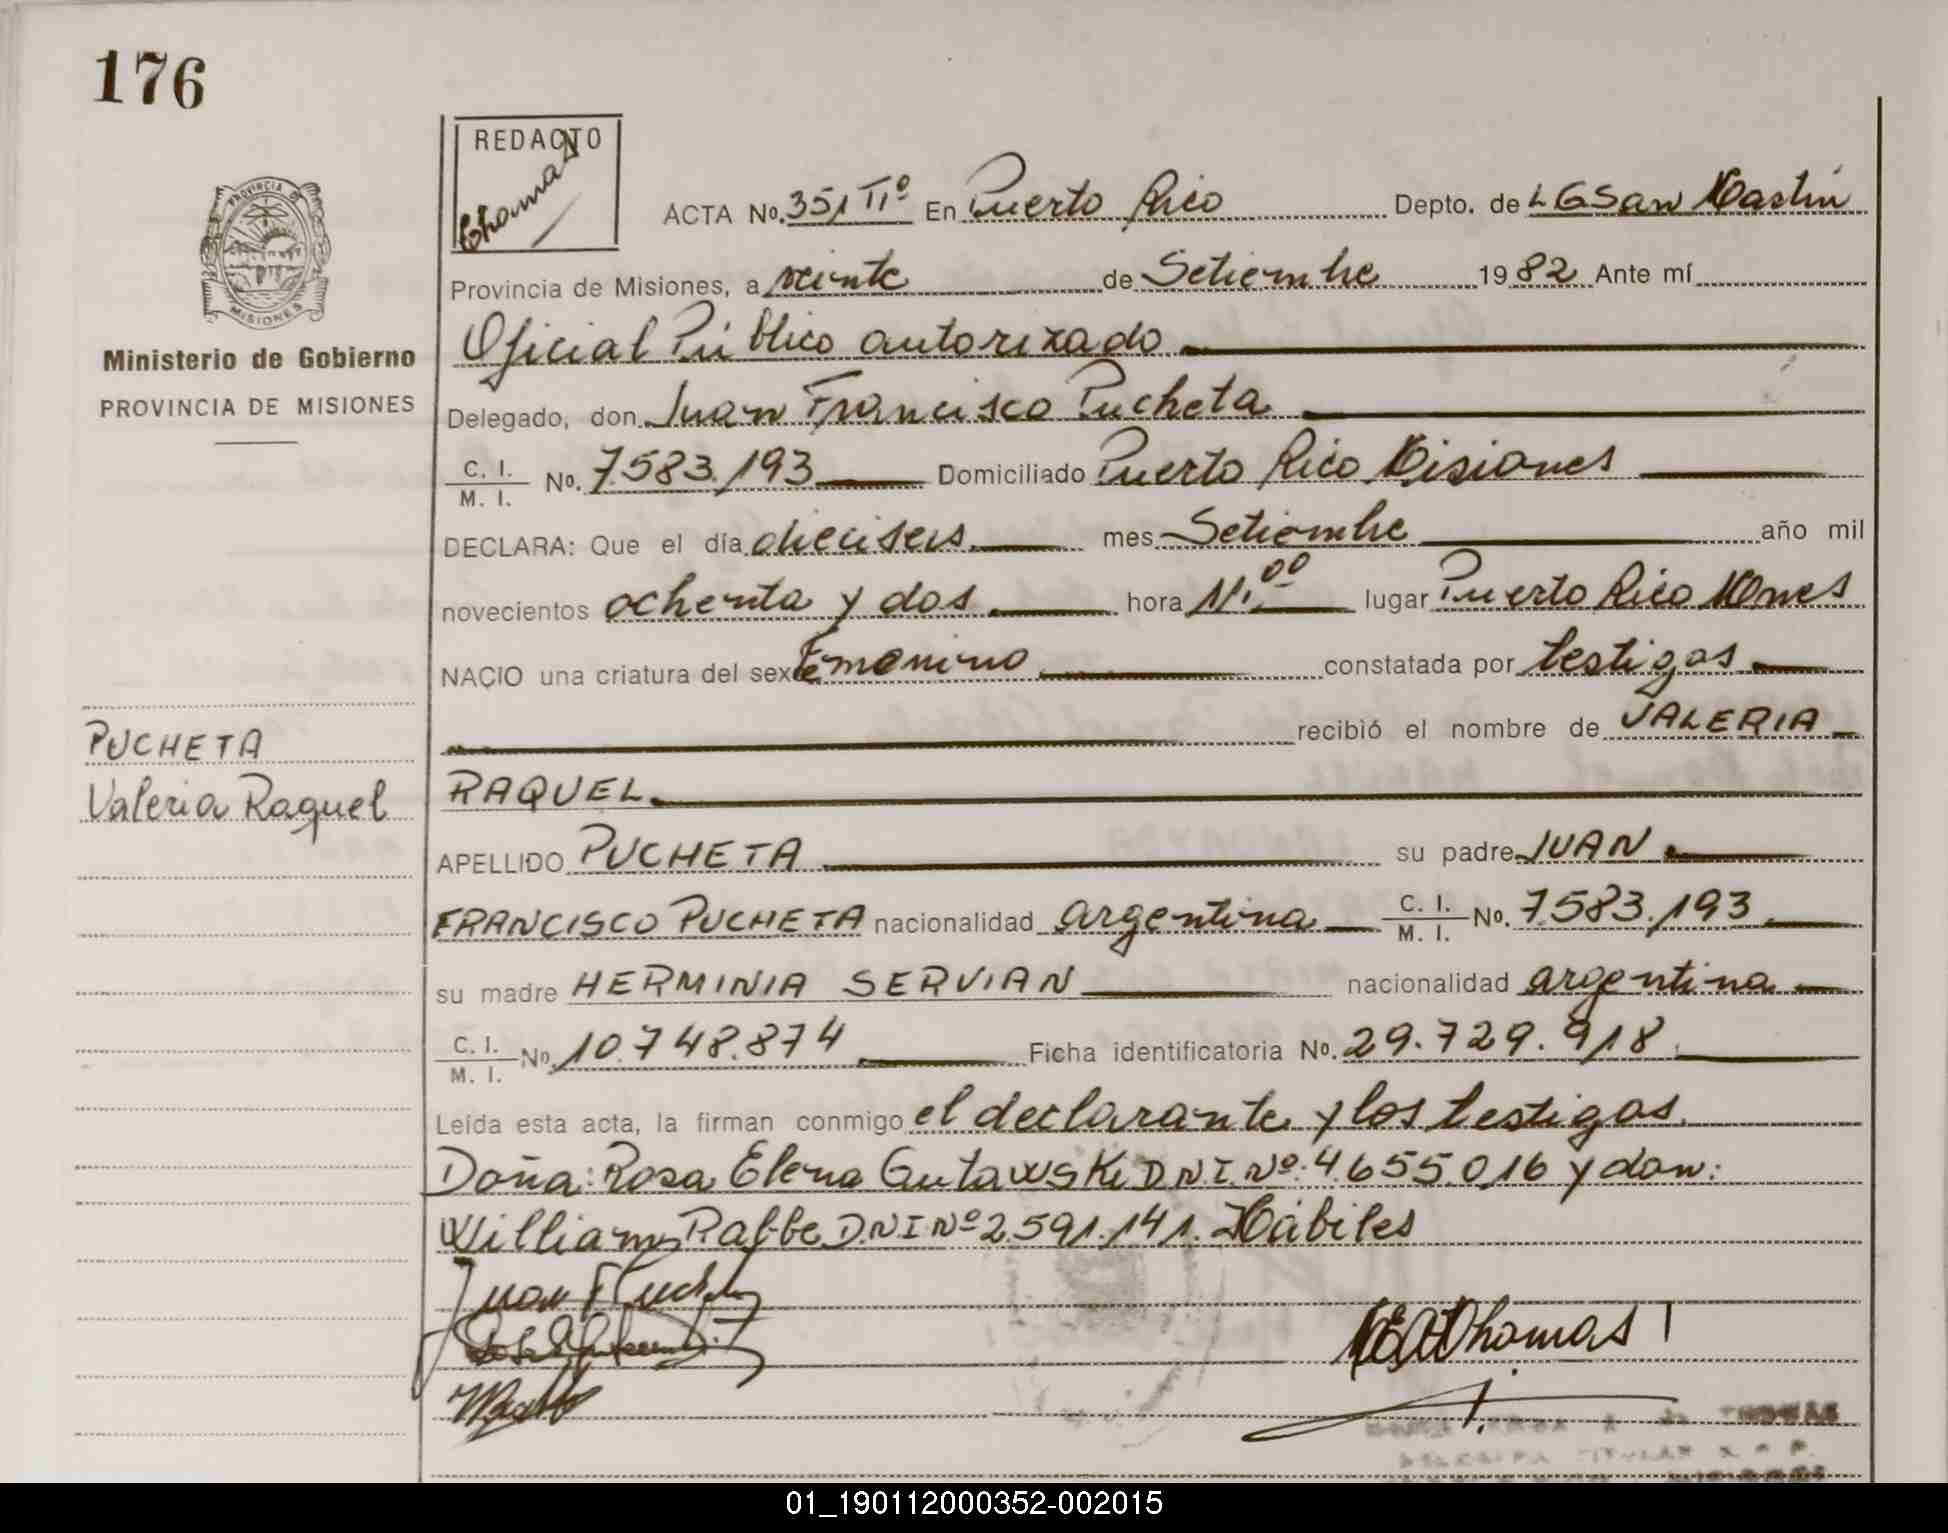 176
REDACTO
Thomas
PROVINCIA DE
MISIONES
ACTA No. 351 TIº En Puerto Rico Depto. de L G San Martin
Provincia de Misiones, a veinte de Setiembre 1982 Ante mí
Ministerio de Gobierno
PROVINCIA DE MISIONES
Oficial Público autorizado
Delegado, don Juan Francisco Pucheta
C. I.
M. I. No. 7.583.193 Domiciliado Puerto Rico Misiones
DECLARA: Que el día dieciseis mes Setiembre año mil
novecientos ochenta y dos hora 11:00 lugar Puerto Rico Mnes
NACIO una criatura del sexo femenino constatada por testigos
recibió el nombre de VALERIA
PUCHETA
Valeria Raquel
RAQUEL
APELLIDO PUCHETA su padre JUAN
FRANCISCO PUCHETA nacionalidad argentina C. I.
M. I. No. 7.583.193
su madre HERMINIA SERVIAN nacionalidad argentina
C. I.
M. I. No. 10.748.874 Ficha identificatoria No. 29.729.918
Leída esta acta, la firman conmigo el declarante y los testigos
Doña: Rosa Elena Gutawski D.N.I. Nº 4.655.016 y don:
William Rabbe D.N.I Nº 2.591.141. Hábiles
Juan F Pucheta
Thomas
THOMAS
01_190112000352-002015